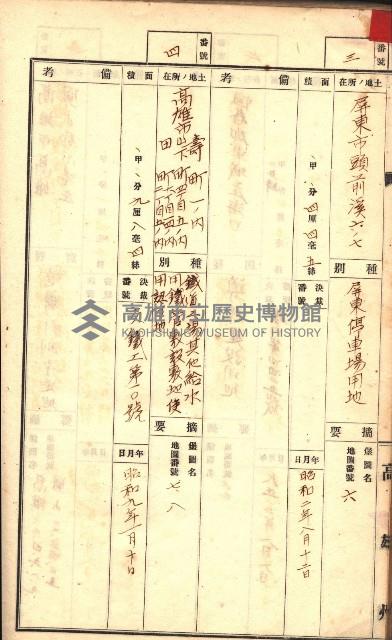 番號
三
土地ノ所在
屏東市頭前溪六ノ七
種別
屏東停車場用地
摘要
堡圖名
地圖番號
六
面積
、甲、分四厘四毫五絲
決裁番號
年月日
昭和二年八月十二日
備考
番號
四
土地ノ所在
高雄市
壽町一ノ內
山下町
田町
種別
鐵道工場其他給水
用鐵管敷設敷地使
用設地
摘要
堡圖名
地圖番號
七、八
面積
、甲、分九厘八毫四絲
決裁番號
鐵工第一〇號
年月日
昭和九年一月十日
備考
高雄州
高雄市立歷史博物館
KAOHSIUNG MUSEUM OF HISTORY